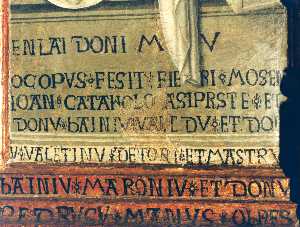 EN LAI DONI M V
OCOPUS FESIT FIE RI MOSE
IOAN CATAHOLO ASIPRSTE ET
DONU BAINIU VALE DU ET DO
U VALETINU DE TORI ET MASTRU
BAINIU MARONIU ET DONU
PEDRUCU MANUS